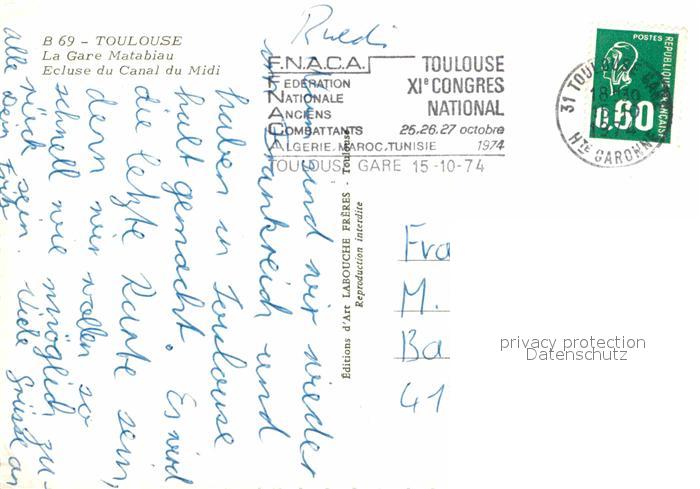 B 69 – TOULOUSE
La Gare Matabiau
Ecluse du Canal du Midi
Ruedi
sind wir wieder
in Frankreich und
haben in Toulouse
halt gemacht. Es wird
die letzte Karte sein,
denn wir wollen so
schnell wie möglich zu-
rück sein. Viele Grüsse an
alle Dein Fritz
F.N.A.C.A.
FEDERATION
NATIONALE
ANCIENS
COMBATTANTS
ALGERIE.MAROC.TUNISIE
TOULOUSE
XIe CONGRES
NATIONAL
25.26.27 octobre
1974
TOULOUSE GARE 15-10-74
31 TOULOUSE GARE
Hte GARONNE
POSTES
REPUBLIQUE FRANCAISE
0,60
Éditions d'Art LABOUCHE FRÈRES - Toulouse
Reproduction interdite
Fra
M.
Ba
41
privacy protection
Datenschutz